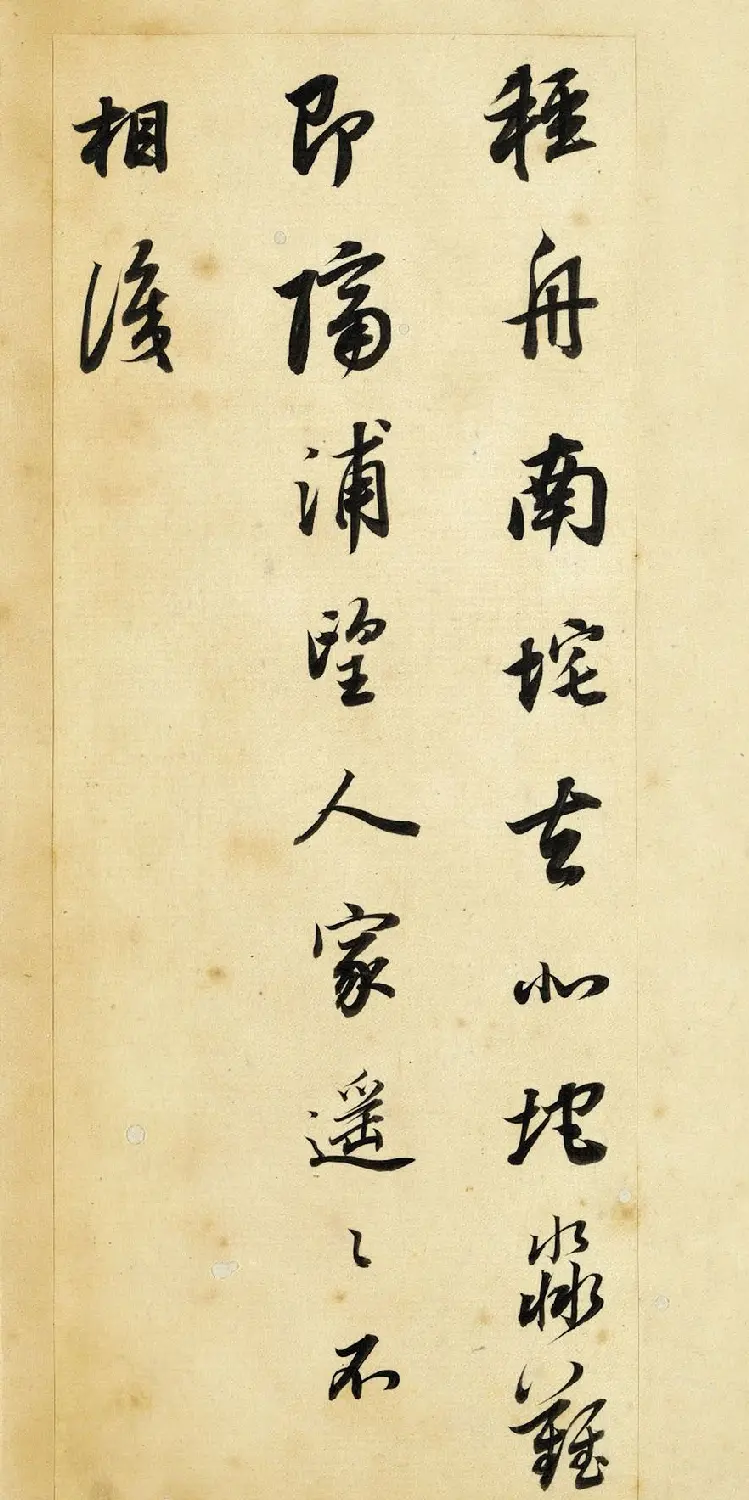 輕舟南垞去北垞淼難
即隔浦望人家遙〻不
相識